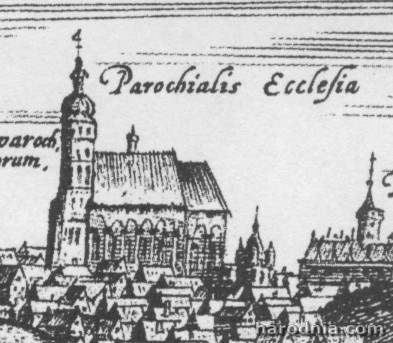 Parochialis Eccleſia
paroch,
orum.
harodnia.com